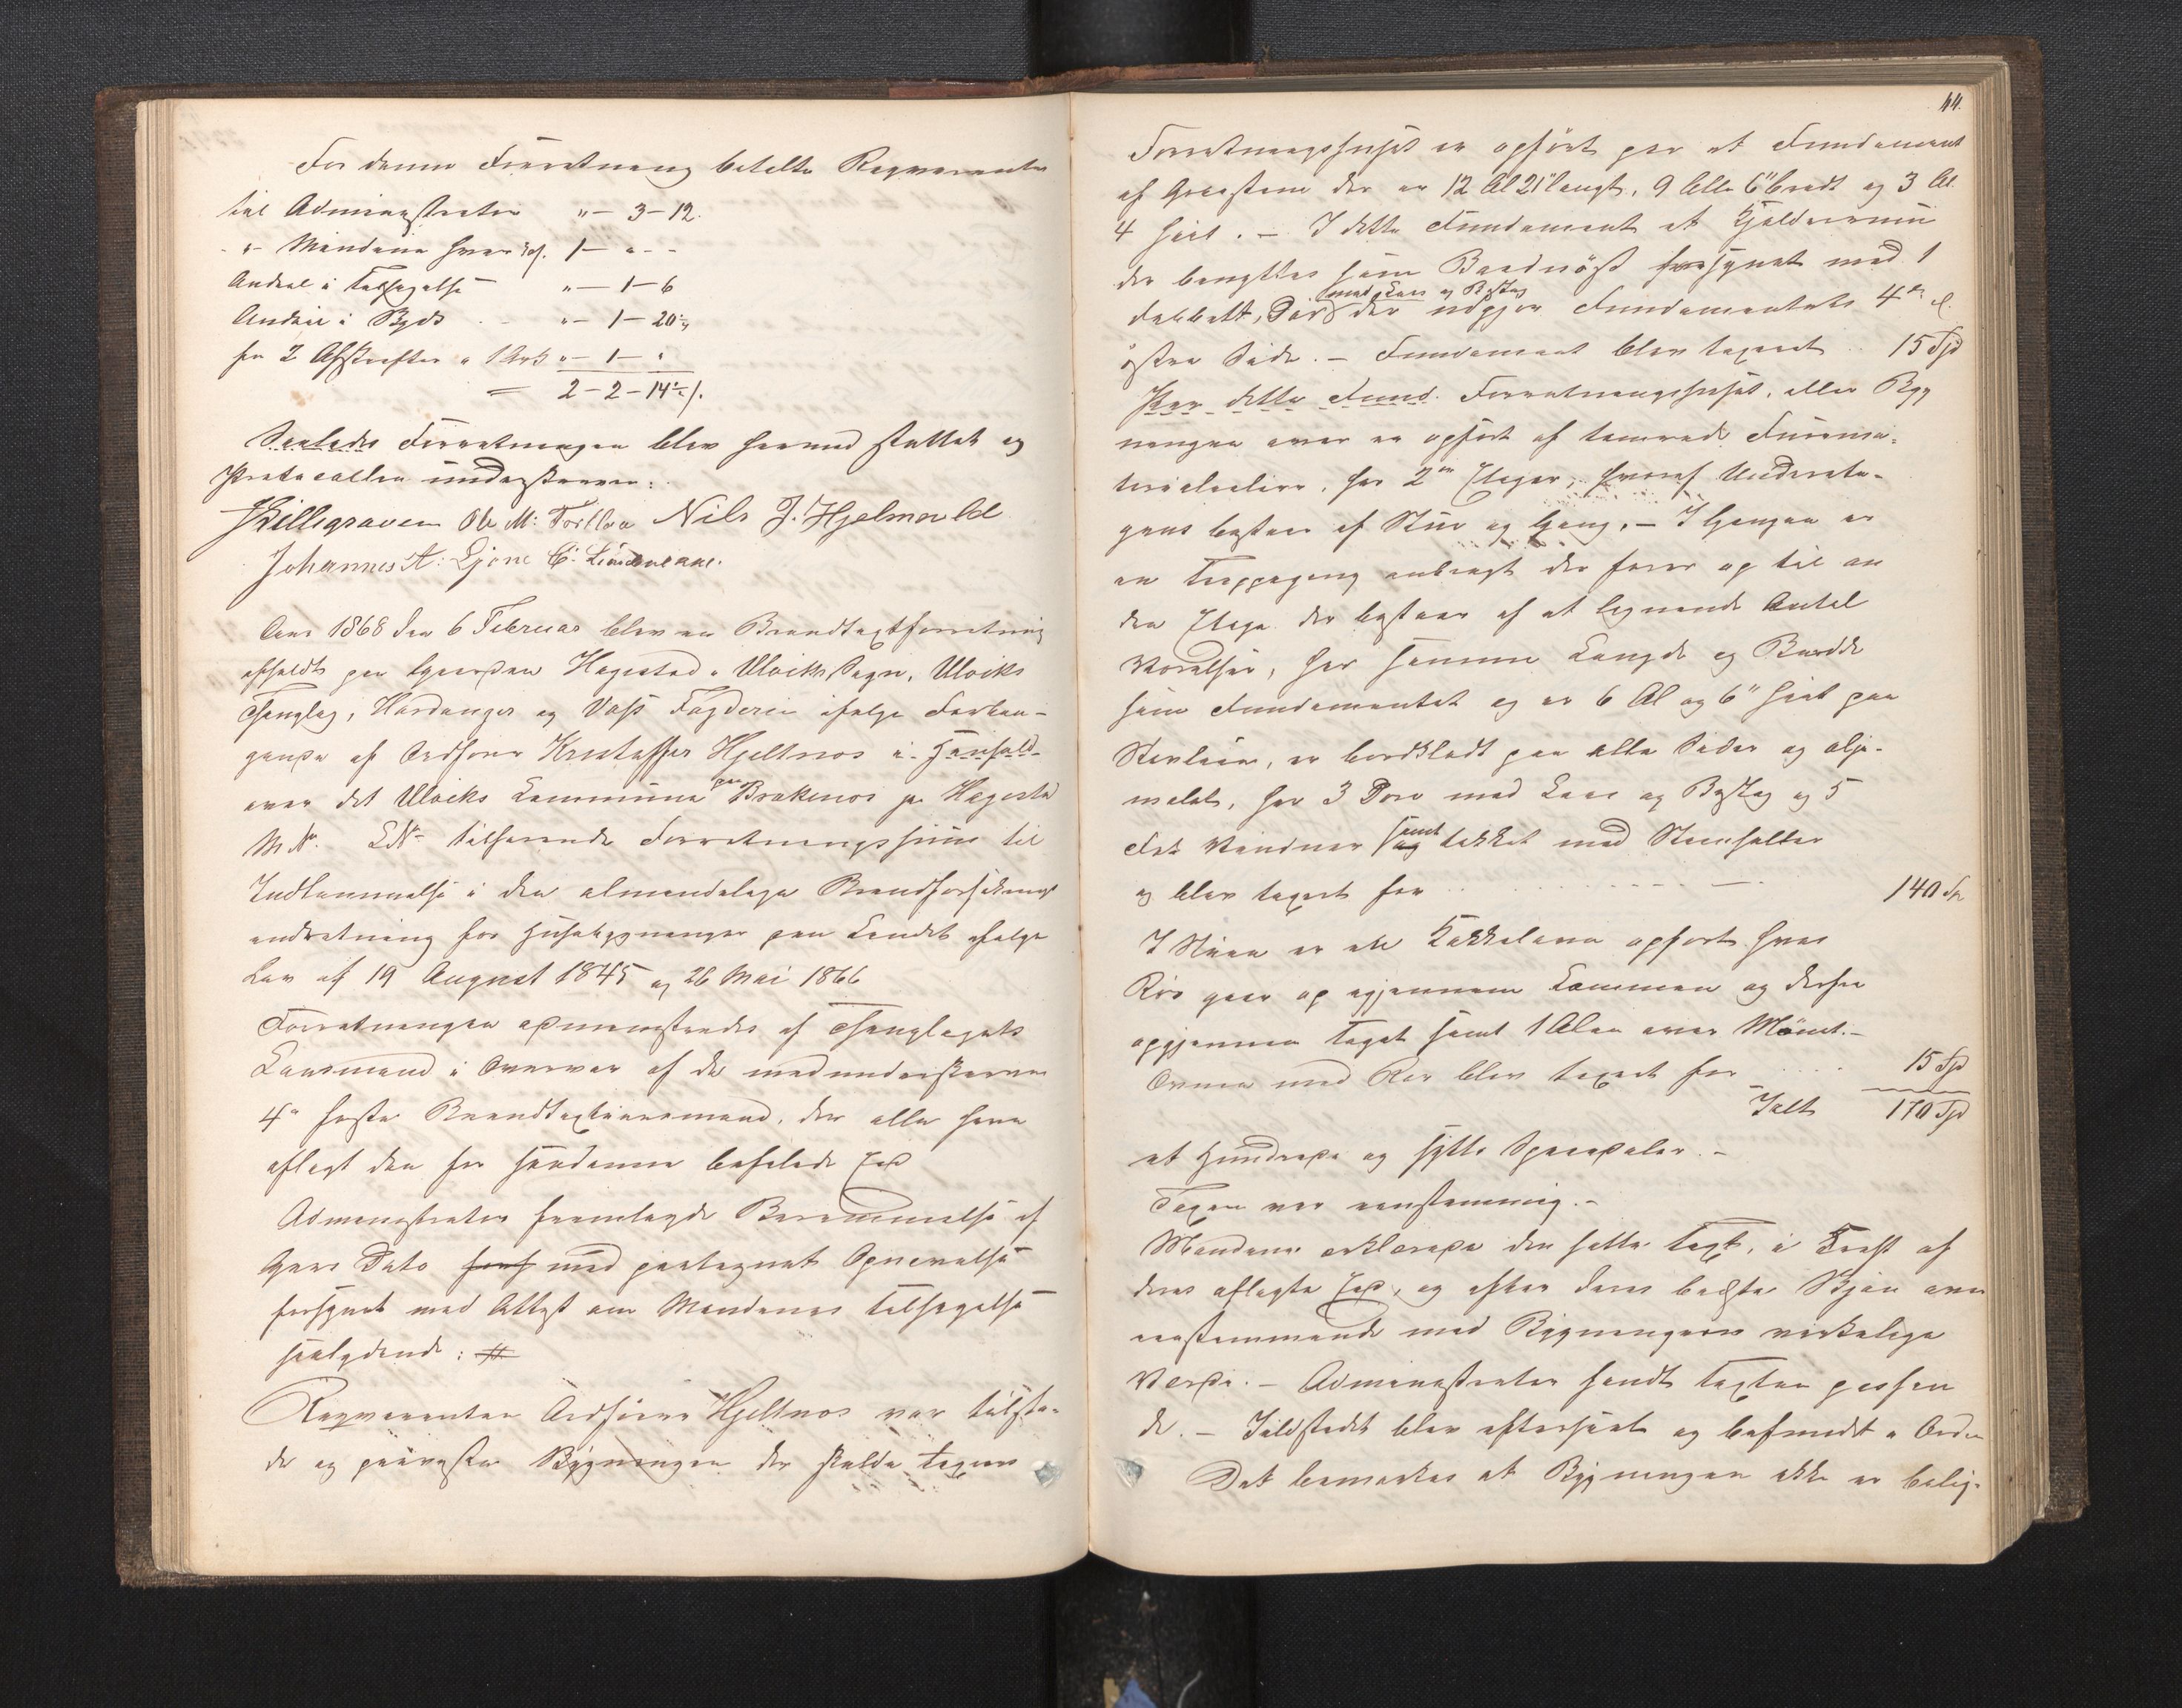 For denne Forretning betalte Reqvirenten
til Administrator " - 3 - 12.
" Mændene hver 1 - " -
Andeel i Tilsigelse " - 1 - 6
Andeel i Skyds " - 1 - 20
for 2 Afskrifter a 1 Ark " - 1 - "
= 2 - 2 - 14
Saaledes Forretningen blev hermed sluttet og
Protocollen underskreven:
Killigraven Ole M: Torblaa Nils J. Hjelmevold
Johannes A: Ljone C: Lindebrække.
Aar 1868 den 6 Februar blev en Brandtaxtforretning
afholdt paa Gaarden Hagestad i Ulviks Sogn, Ulviks
Thinglag, Hardanger og Voss Fogderie ifølge Forlan-
gende af Ordfører Kristoffer Hjeltnes i Henhold
over det Ulviks Kommune paa Brakenes paa Hagesta
M N. L N. tilhørende Forretningshuus til
Indlemmelse i den almindelige Brandforsikrings
indretning for Huusbygninger paa Landet ifølge
Lov af 19 August 1845 og 26 Mai 1866
Forretningen administreredes af Thinglagets
Lensmand i Overvær af de medunderskrevne
4 faste Brandtaxtionsmænd, der alle have
aflagt den for saadanne befalede Eed
Administrator fremlagde Berammelse af
Gaars Dato med paategnet Opnævnelse
forsynet med Attest om Mændenes Tilsigelse
saalydende:
Reqvirenten Ordfører Hjeltnes var tilste-
de og paaviste Bygningen der skulde taxeres
44.
Forretningshuset er opført paa et Fundament
af Graasteen der er 12 Al 21" langt, 9 Alle 6" bredt og 3 Al.
4 høit. - I dette Fundament et Kjælderrum
der benyttes som Baadnøst forsynet med 1
dobbelt Dør med Laas og Beslag der udgjør Fundamentets 4
østre Side. - Fundament blev taxeret 15 Spd
Paa dette Fund. Forretningshuset, eller Byg
ningen over er opført af tømrede Furema-
terialier, har 2 Etager, hvoraf Undereta-
gens bestaar af Stue og Gang, - I Gangen er
en Trappegang anbragt der fører op til an
den Etage der bestaar af et lignende Antal
Værelser, har samme Længde og Bredde
som Fundamentet og er 6 Al og 6" høit paa
Stavleien, er bordklædt paa alle Sider og olje-
malet, har 3 Døre med Laas og Beslag og 5
Fek Vinduer samt tækket med Steenheller
og blev taxert for 140 Sp
I Stuen er een Kakkelovn opført hvis
Rør gaar op igjennem Kammen og derfra
opigjennem Taget samt 1 Alen over Mønet. -
Ovnen med Rør blev taxert for 15 Spd
Ialt 170 Spd
et Hundrede og sytti Speciedaler. -
Taxten var eenstemmig. -
Mændene erklærede den satte Taxt, i Kraft af
deres aflagte Eed, og efter deres bedste Skjøn over
eensstemmende med Bygningens virkelige
Værdi. - Administrator fandt Taxten passen
de. - Ildstedet blev efterseet og befundet i Orden
Det bemærkes at Bygningen ikke er belig-